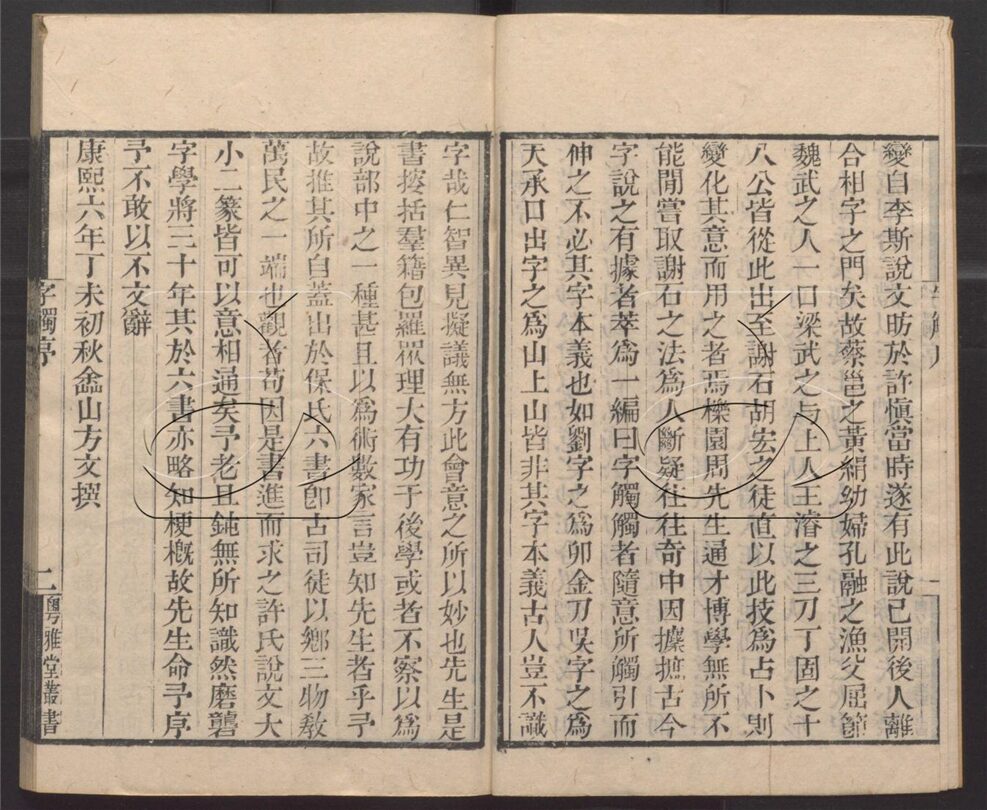 變自李斯說文昉於許慎當時遂有此說已開後人離
合相字之門矣故蔡邕之黃絹幼婦孔融之漁父屈節
魏武之人一口梁武之与上人王濬之三刀丁固之十
八公皆從此出至謝石胡宏之徒直以此技爲占卜則
變化其意而用之者焉櫟園周先生通才博學無所不
能閒嘗取謝石之法爲人斷疑往往奇中因攈摭古今
字說之有據者萃爲一編曰字觸觸者隨意所觸引而
伸之不必其字本義也如劉字之爲卯金刀吳字之爲
天承口出字之爲山上山皆非其字本義古人豈不識
字觸序
一
字哉仁智異見擬議無方此會意之所以妙也先生是
書揬括羣籍包羅眾理大有功于後學或者不察以爲
說部中之一種甚且以爲術數家言豈知先生者乎予
故推其所自蓋出於保氏六書卽古司徒以鄉三物敎
萬民之一端也觀者苟因是書進而求之許氏說文大
小二篆皆可以意相通矣予老且鈍無所知識然磨礱
字學將三十年其於六書亦略知梗概故先生命予序
予不敢以不文辭
康熙六年丁未初秋嵞山方文撰
字觸序
二
粵雅堂叢書